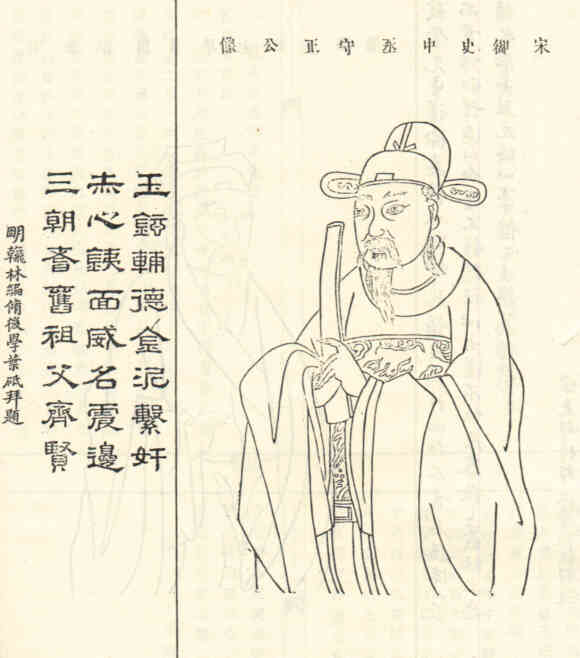 宋御史中丞守正公像
玉鉉輔德金泥繫奸
赤心銕面威名震邊
三朝耆舊祖父齊賢
明翰林編脩後學葉砥拜題